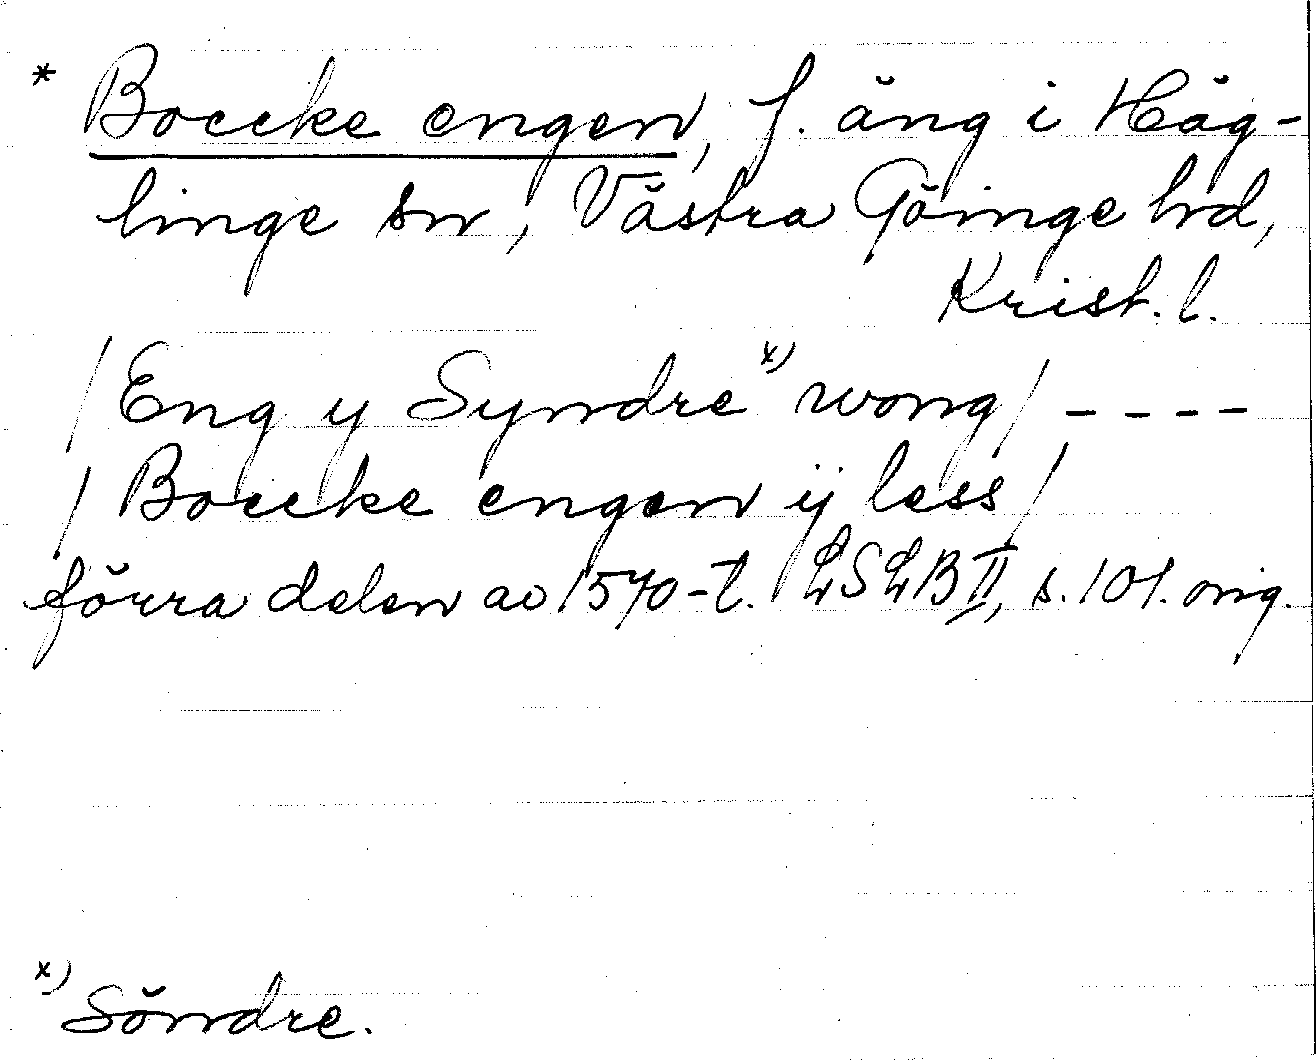 * Boecke engen, f. äng i Häg-
linge sn, Västra Göinge hd,
Krist. l.
/Eng y Syndre x) wong/ - - - -
/Boecke engen ij less/
förra delen av 1570-t. LSLB II, s. 101. orig.
x) Söndre.